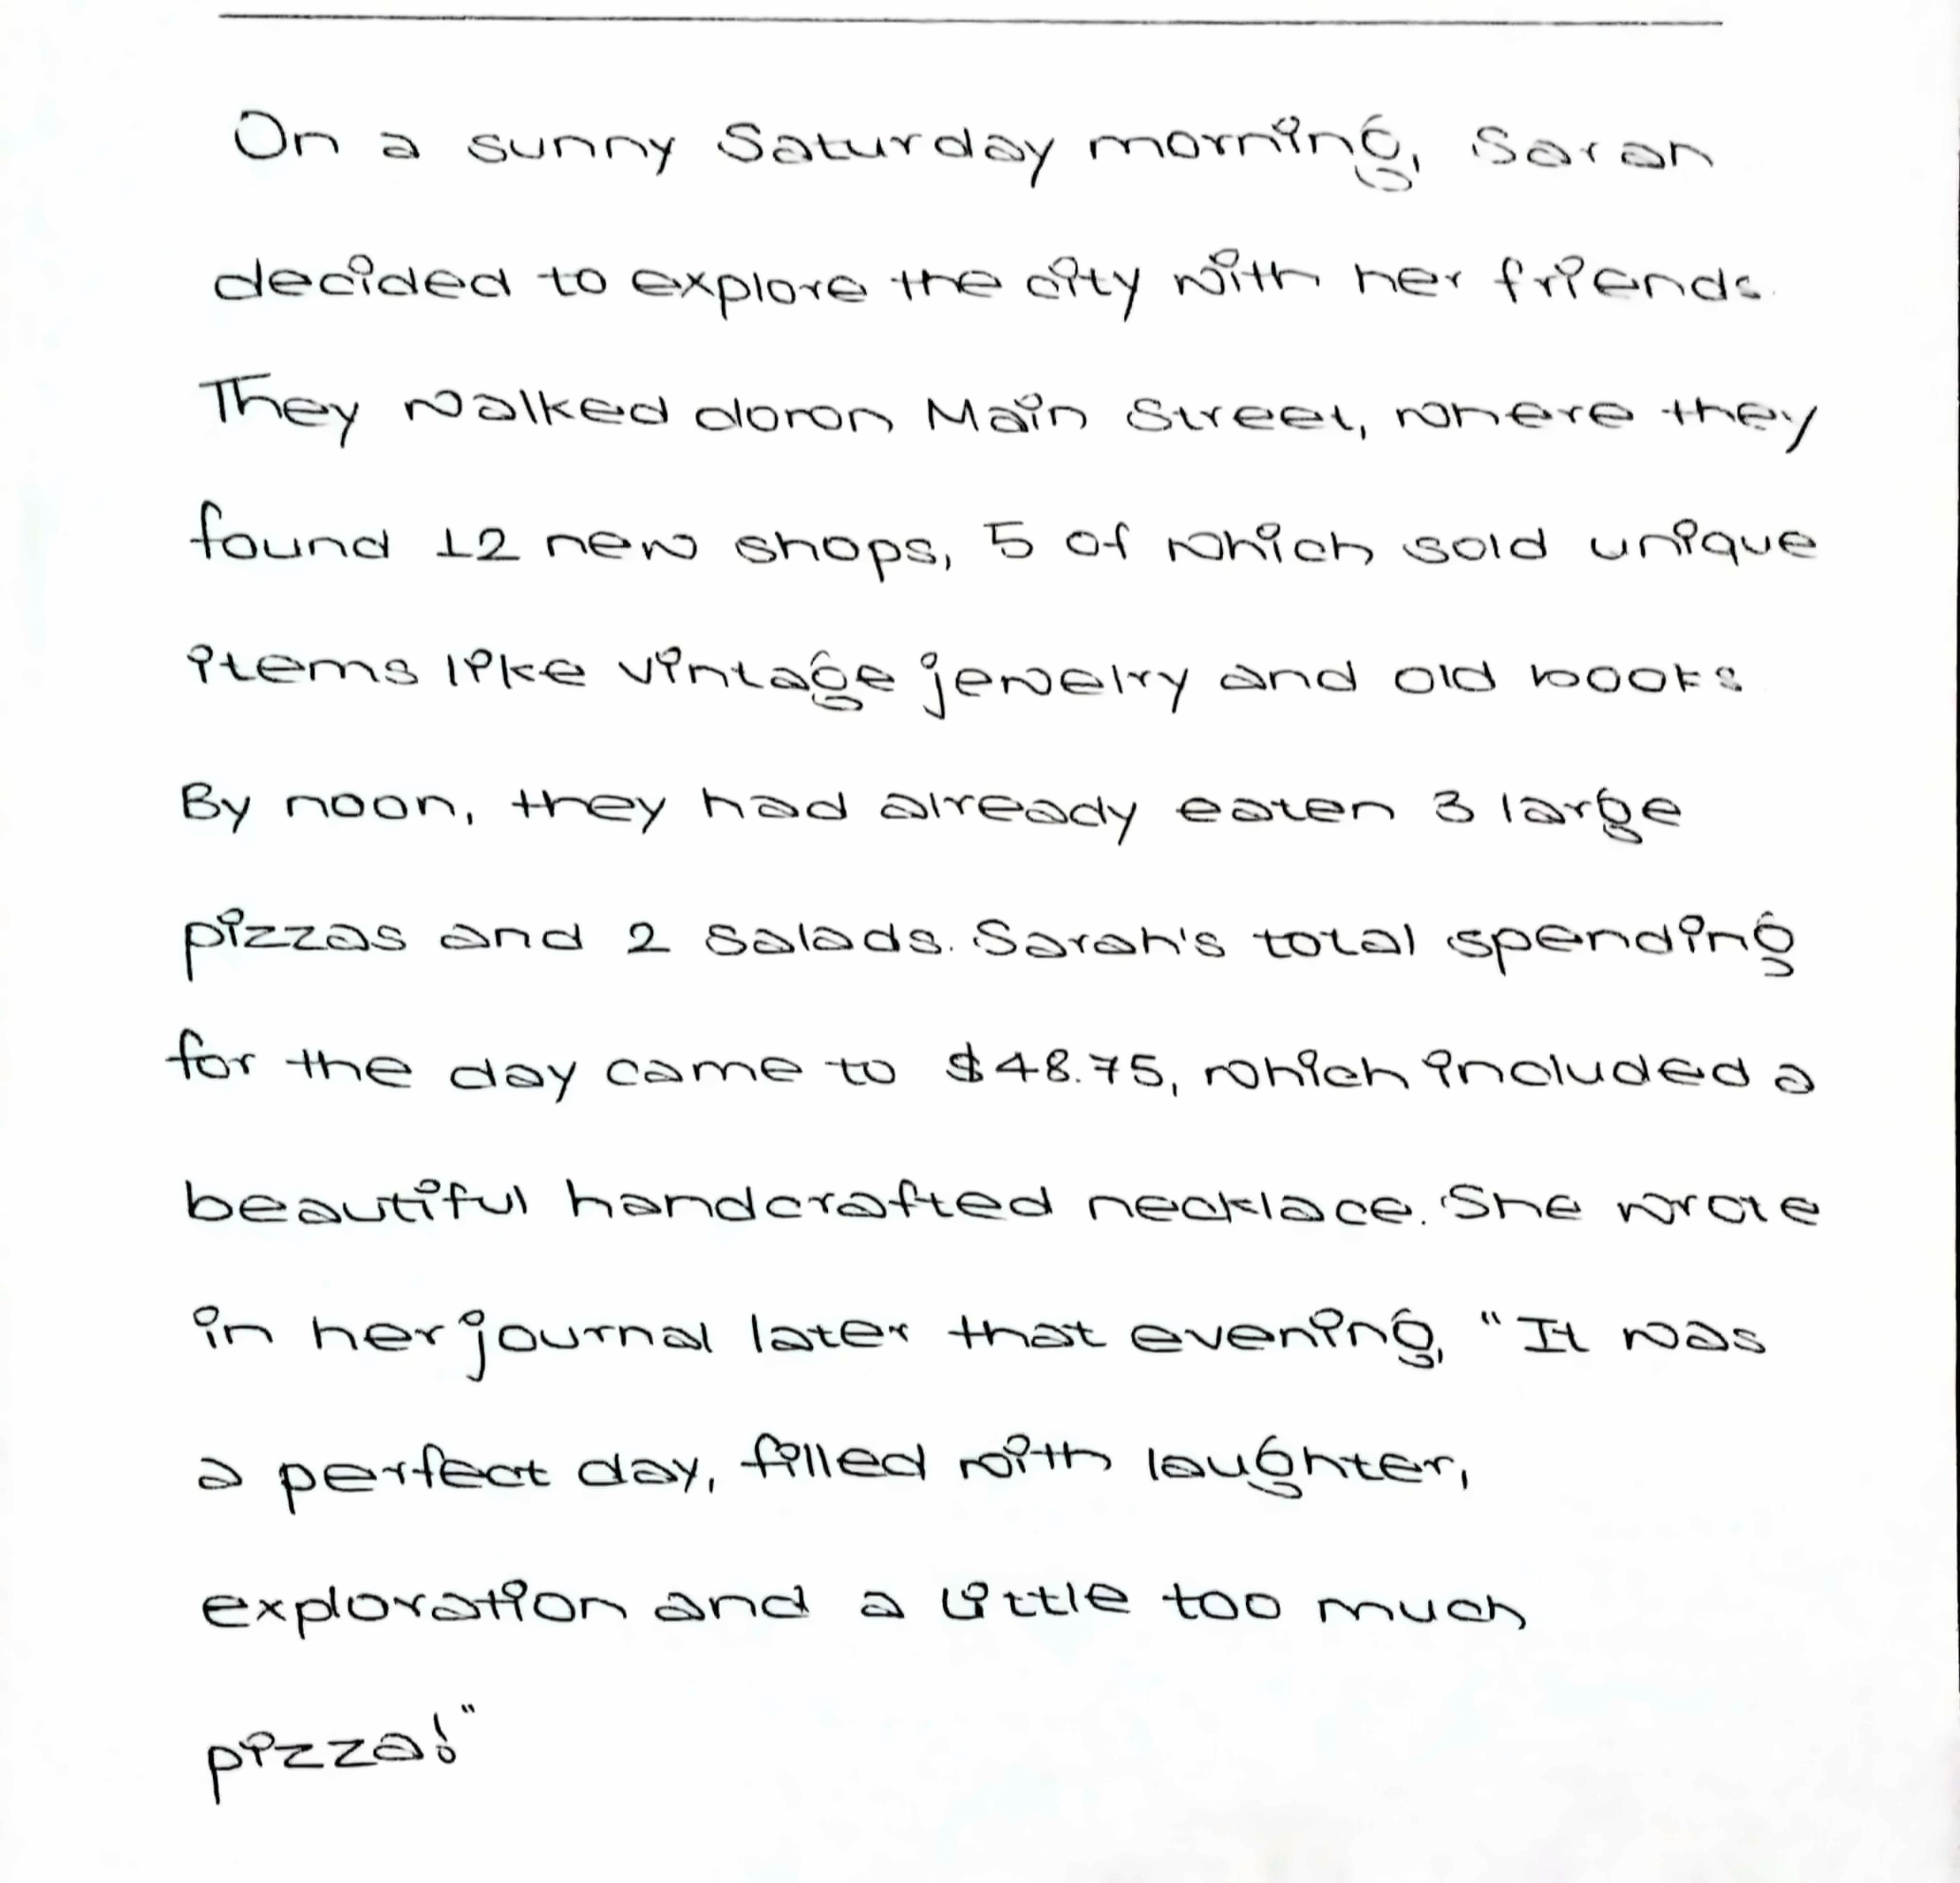 On a sunny Saturday morning, Sarah
decided to explore the city with her friends.
They walked down Main Street, where they
found 12 new shops, 5 of which sold unique
items like vintage jewelry and old books
By noon, they had already eaten 3 large
pizzas and 2 salads. Sarah's total spending
for the day came to $48.75, which included a
beautiful handcrafted necklace. She wrote
in her journal later that evening, "It was
a perfect day, filled with laughter,
exploration and a little too much
pizza!"